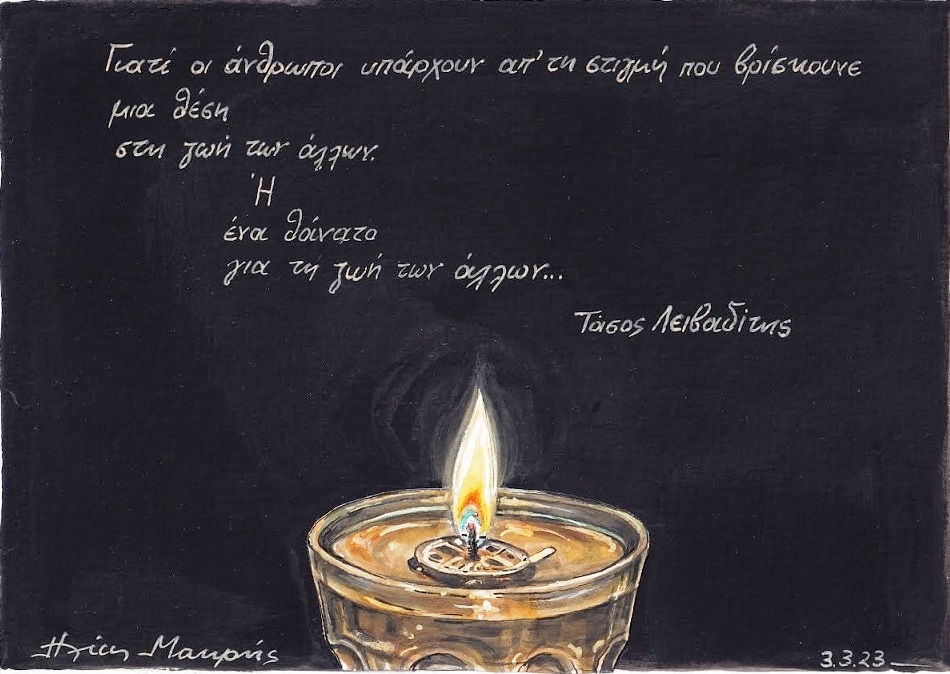 Γιατί οι άνθρωποι υπάρχουν απ' τη στιγμή που βρίσκουνε
μια θέση
στη ζωή των άλλων.
Ή
ένα θάνατο
για τη ζωή των άλλων...
Τάσος Λειβαδίτης
Ηλίας Μακρής
3.3.23